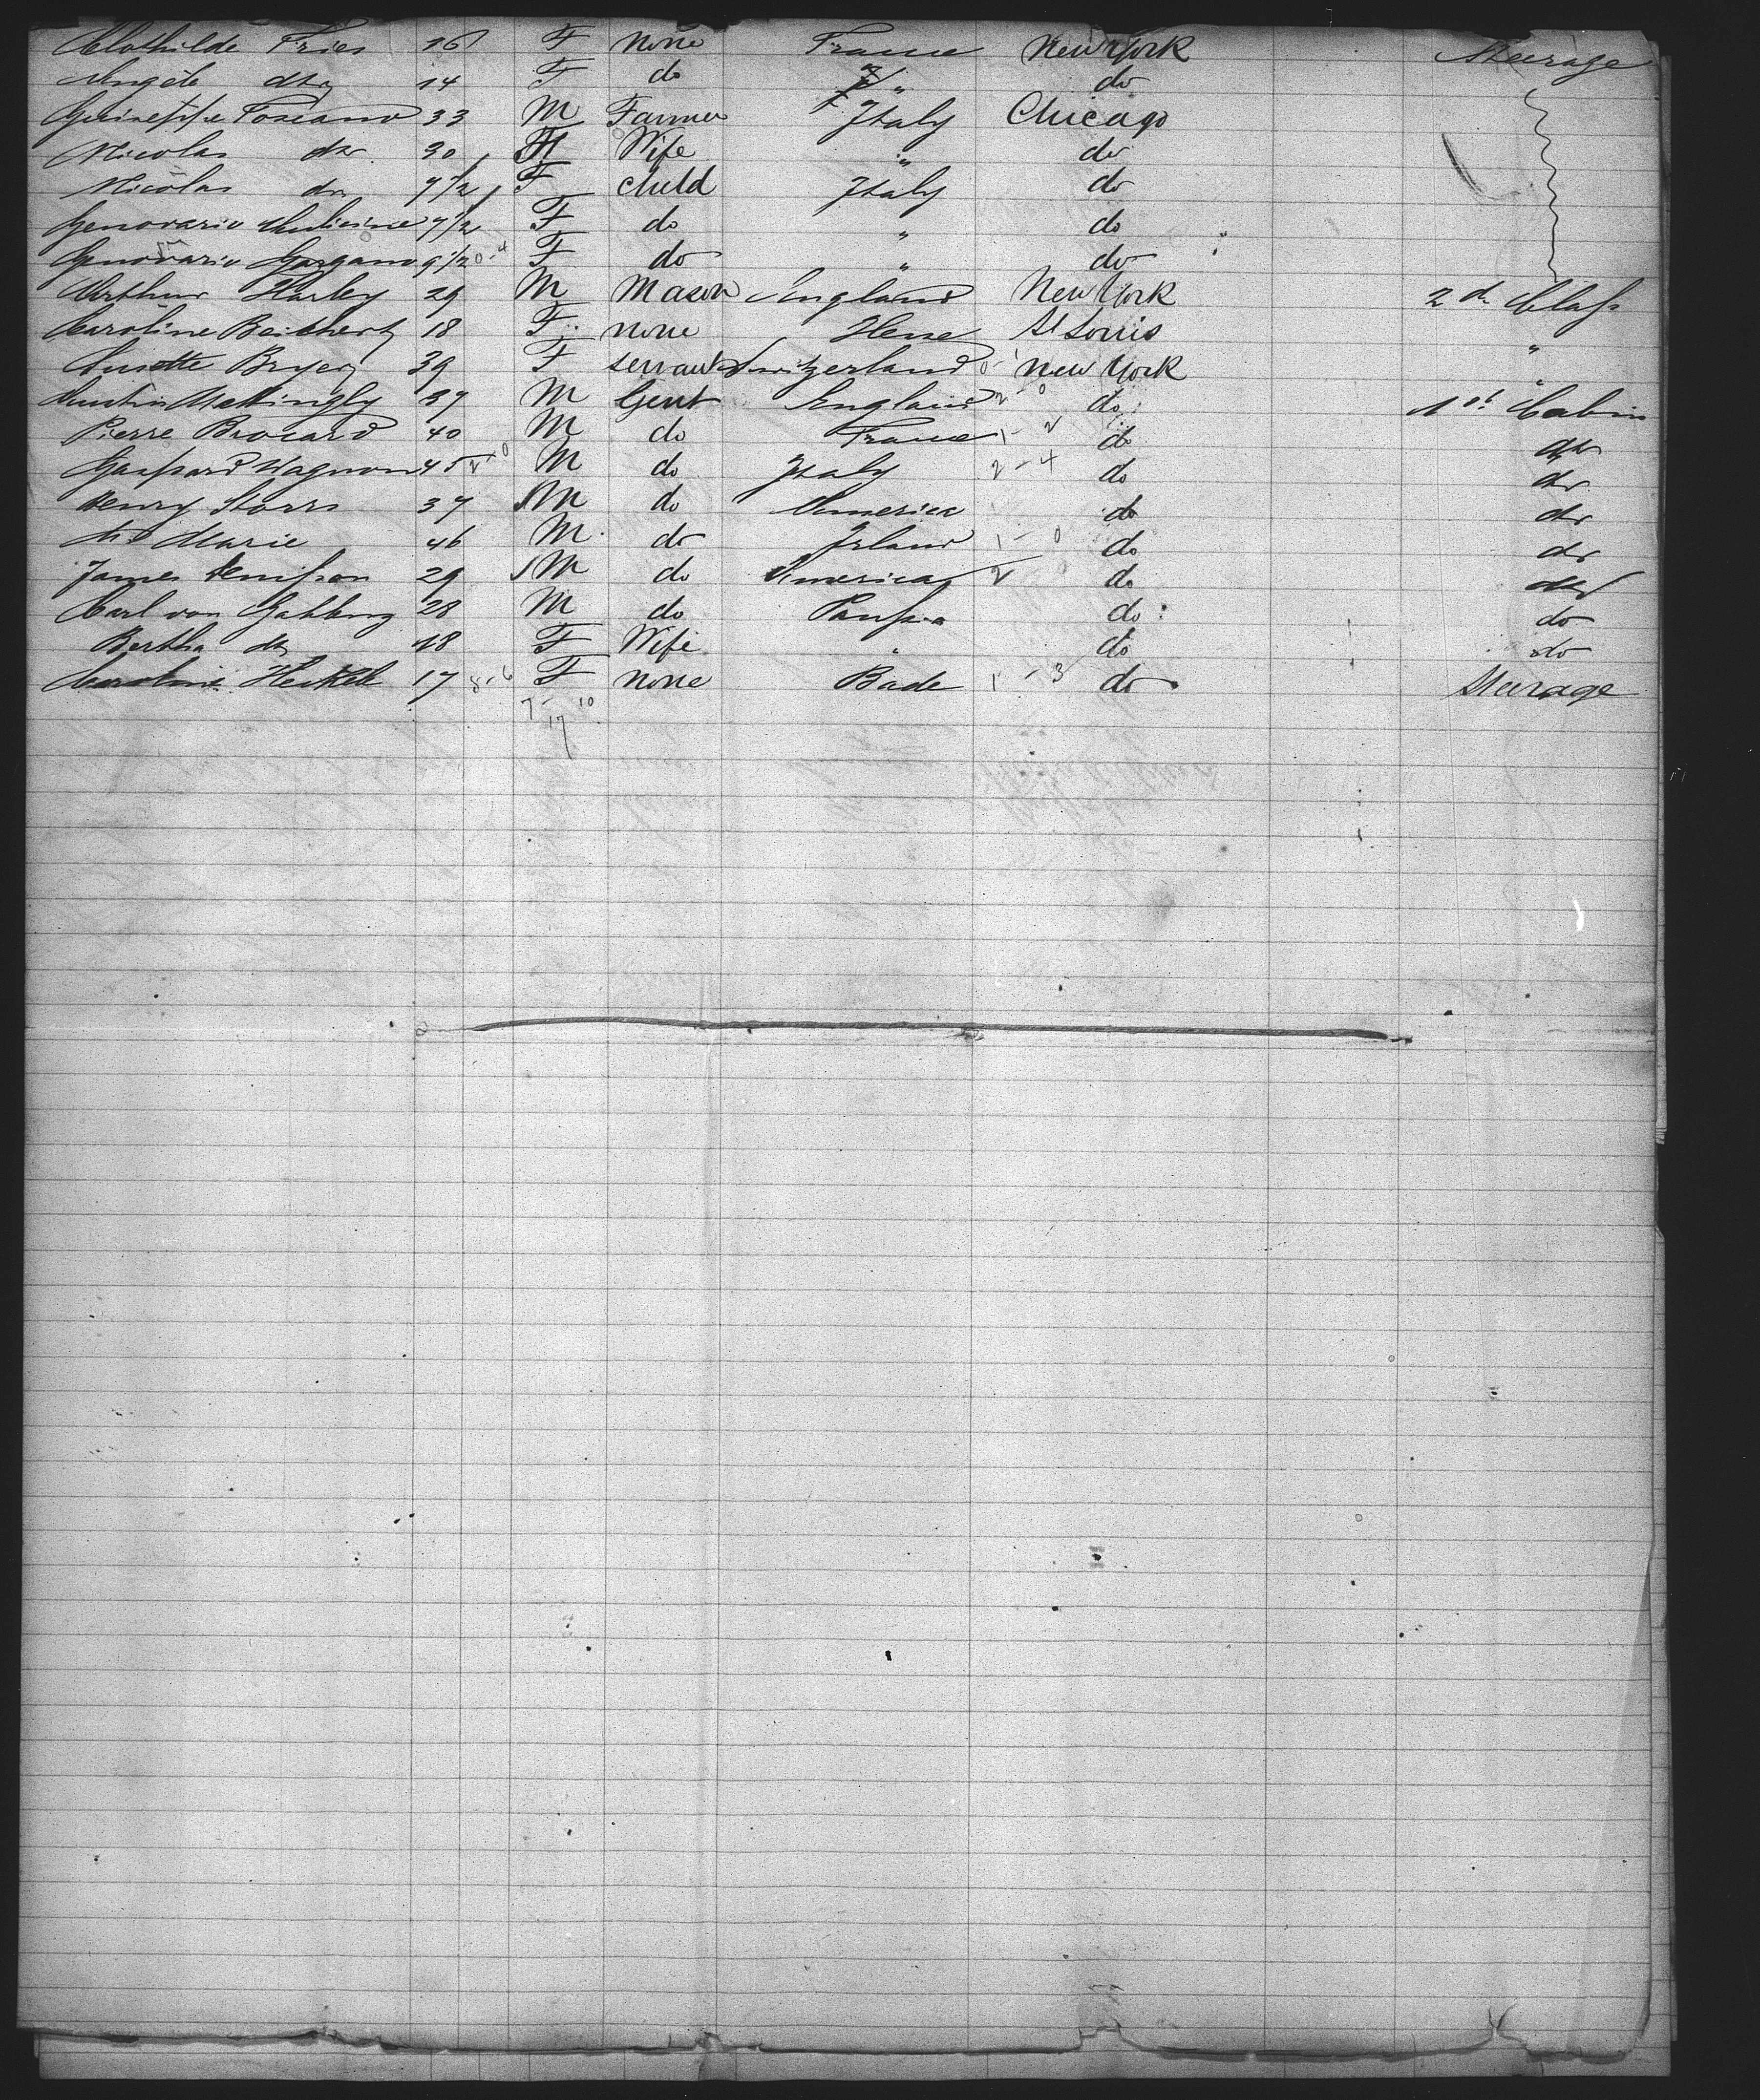 Clothilde Fries 16 F none France New York Steerage
Angèle do 14 F do " do
Guiseppe Toscano 33 M Farmer Italy Chicago
Nicolas do 30 F Wife " do
Nicolas do 7 1/2 F child Italy do
Genovario 7 1/2 F do " do
Genovario Gargano 9 1/2 F do " do
Arthur Harley 29 M Mason England New York 2d Class
Caroline 18 F none Hesse St Louis "
Susette Bryer 39 F servant Switzerland New York "
Mattingly 37 M Gent England 2-0 do 1st Cabin
Pierre Brocard 40 M do France 1-2 do do
Gaspard Wagnon 45 M do Italy 2-4 do do
Henry Storrs 37 M do America do do
Marie 46 M do Irland 1-0 do do
James 29 M do America 2 do do
Carl von 28 M do do do
Bertha do 18 F Wife " do do
Caroline Heckel 17 F none Bade 1-3 do Steerage
7-10
17